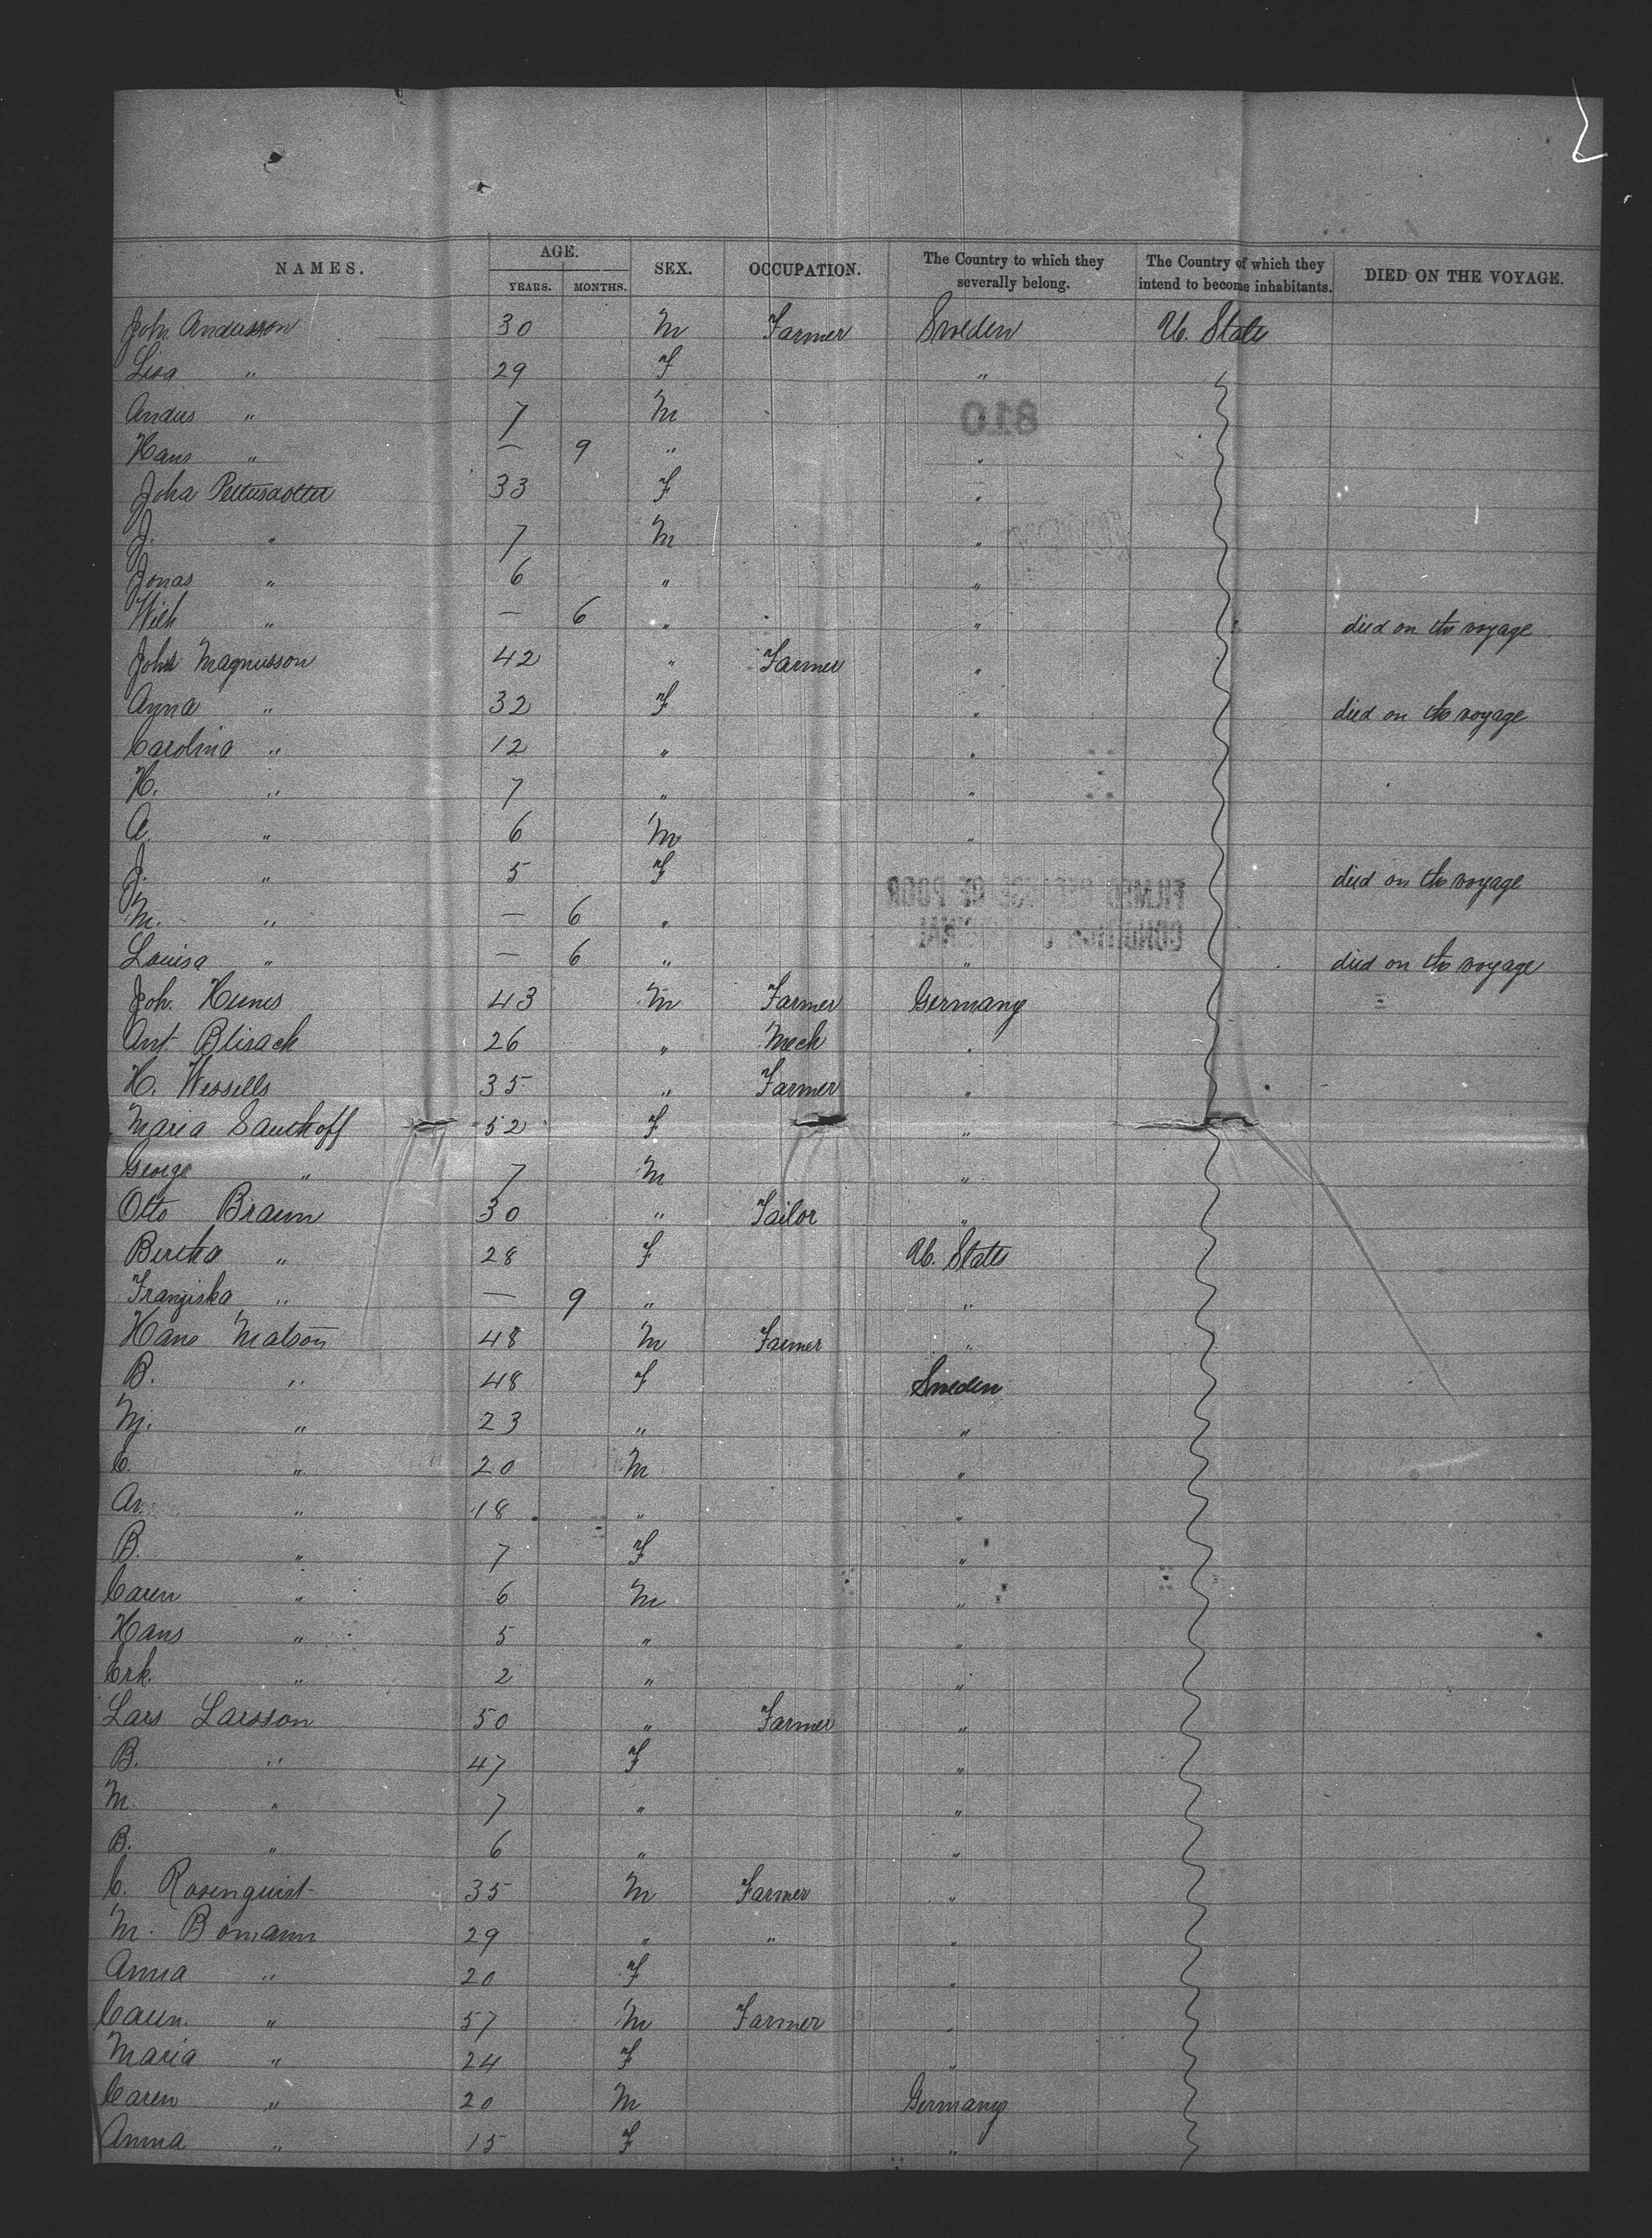 NAMES. AGE. YEARS. MONTHS. SEX. OCCUPATION. The Country to which they severally belong. The Country of which they intend to become inhabitants. DIED ON THE VOYAGE.
John Andersson 30 M Farmer Sweden U. States
Lisa " 29 F "
Anders " 7 M
Hans " — 9 " "
Joha Pettersdotter 33 F "
J. " 7 M "
Jonas " 6 " "
Wilh " — 6 " " died on the voyage
Johs Magnusson 42 " Farmer "
Anna " 32 F " died on the voyage
Carolina " 12 " "
H. " 7 " "
A. " 6 M "
J. " 5 F died on the voyage
M. " — 6 "
Louisa " — 6 " " died on the voyage
Joh. 43 M Farmer Germany
Ant. Blisack 26 " Mech "
H. Wessells 35 " Farmer "
Maria Sauthoff 52 F "
George " 7 M "
Otto Braun 30 " Tailor "
Bertha " 28 F U. States
Franziska " — 9 " "
Hans Matson 48 M Farmer "
B. " 48 F Sweden
M. " 23 " "
C. " 20 M "
An. " 18 " "
B. " 7 F "
Caren " 6 M "
Hans " 5 " "
Erk. " 2 " "
Lars Larsson 50 " Farmer "
B. " 47 F "
M. " 7 " "
B. " 6 " "
C. Rosenquist 35 M Farmer "
M. Bomann 29 " " "
Anna " 20 F "
" 57 M Farmer "
Maria " 24 F "
Caren " 20 M Germany
Anna " 15 F "
810
FILMED BECAUSE OF POOR
CONDITION OF ORIGINAL